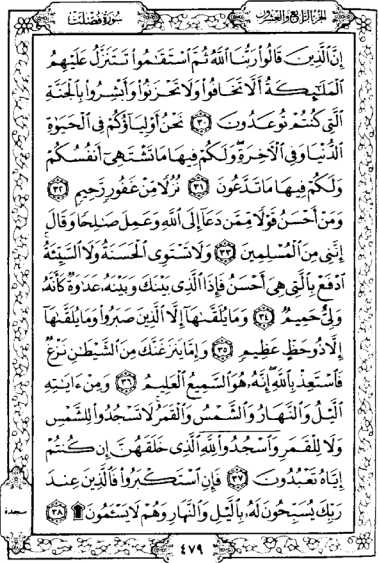 الجزء الرابع والعشرون
سورة فصلت
إِنَّ ٱلَّذِينَ قَالُوا۟ رَبُّنَا ٱللَّهُ ثُمَّ ٱسْتَقَٰمُوا۟ تَتَنَزَّلُ عَلَيْهِمُ
ٱلْمَلَٰٓئِكَةُ أَلَّا تَخَافُوا۟ وَلَا تَحْزَنُوا۟ وَأَبْشِرُوا۟ بِٱلْجَنَّةِ
ٱلَّتِى كُنتُمْ تُوعَدُونَ ٣٠ نَحْنُ أَوْلِيَآؤُكُمْ فِى ٱلْحَيَوٰةِ
ٱلدُّنْيَا وَفِى ٱلْءَاخِرَةِ وَلَكُمْ فِيهَا مَا تَشْتَهِىٓ أَنفُسُكُمْ
وَلَكُمْ فِيهَا مَا تَدَّعُونَ ٣١ نُزُلًا مِّنْ غَفُورٍ رَّحِيمٍ ٣٢
وَمَنْ أَحْسَنُ قَوْلًا مِّمَّن دَعَآ إِلَى ٱللَّهِ وَعَمِلَ صَٰلِحًا وَقَالَ
إِنَّنِى مِنَ ٱلْمُسْلِمِينَ ٣٣ وَلَا تَسْتَوِى ٱلْحَسَنَةُ وَلَا ٱلسَّيِّئَةُ
ٱدْفَعْ بِٱلَّتِى هِىَ أَحْسَنُ فَإِذَا ٱلَّذِى بَيْنَكَ وَبَيْنَهُۥ عَدَٰوَةٌ كَأَنَّهُۥ
وَلِىٌّ حَمِيمٌ ٣٤ وَمَا يُلَقَّىٰهَآ إِلَّا ٱلَّذِينَ صَبَرُوا۟ وَمَا يُلَقَّىٰهَآ
إِلَّا ذُو حَظٍّ عَظِيمٍ ٣٥ وَإِمَّا يَنزَغَنَّكَ مِنَ ٱلشَّيْطَٰنِ نَزْغٌ
فَٱسْتَعِذْ بِٱللَّهِ إِنَّهُۥ هُوَ ٱلسَّمِيعُ ٱلْعَلِيمُ ٣٦ وَمِنْ ءَايَٰتِهِ
ٱلَّيْلُ وَٱلنَّهَارُ وَٱلشَّمْسُ وَٱلْقَمَرُ لَا تَسْجُدُوا۟ لِلشَّمْسِ
وَلَا لِلْقَمَرِ وَٱسْجُدُوا۟ لِلَّهِ ٱلَّذِى خَلَقَهُنَّ إِن كُنتُمْ
إِيَّاهُ تَعْبُدُونَ ٣٧ فَإِنِ ٱسْتَكْبَرُوا۟ فَٱلَّذِينَ عِندَ
رَبِّكَ يُسَبِّحُونَ لَهُۥ بِٱلَّيْلِ وَٱلنَّهَارِ وَهُمْ لَا يَسْـَٔمُونَ ۩ ٣٨
سجدة
٤٧٩